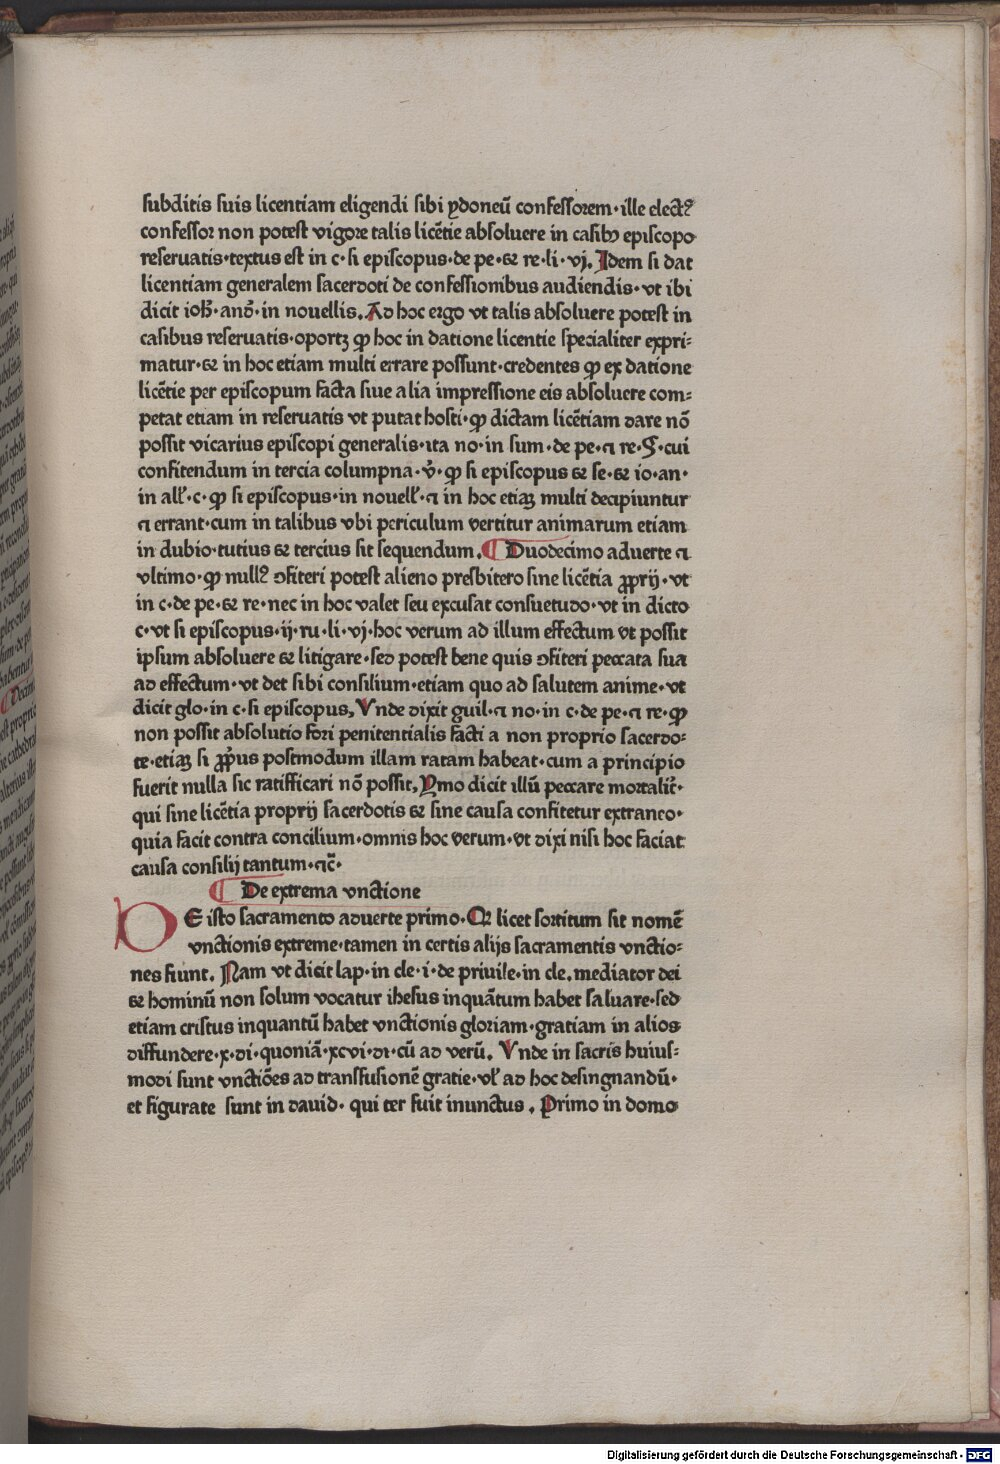 subditis suis licentiam eligendi sibi ydoneū confessorem·ille elect⁹
confessor non potest vigore talis licētie absoluere in casibꝫ episcopo
reseruatis·textus est in c·si episcopus·de pe·⁊ re·li·vj. Idem si dat
licentiam generalem sacerdoti de confessionibus audiendis·vt ibi
dicit ioħ·anð·in nouellis. Ad hoc ergo vt talis absoluere potest in
casibus reseruatis·oportꝫ ꝙ hoc in datione licentie specialiter expri⸗
matur·⁊ in hoc etiam multi errare possunt·credentes ꝙ ex datione
licētie per episcopum facta siue alia impressione eis absoluere com⸗
petat etiam in reseruatis vt putat hosti·ꝙ dictam licētiam dare nō
possit vicarius episcopi generalis·ita no·in sum·de pe·⁊ re·§·cui
confitendum in tercia columpna·v̓·ꝙ si episcopus ⁊ se·⁊ io·an·
in all̓·c·ꝙ si episcopus·in nouell̓·⁊ in hoc etiaꝫ multi decipiuntur
⁊ errant·cum in talibus vbi periculum vertitur animarum etiam
in dubio·tutius ⁊ tercius sit sequendum. ¶ Duodecimo aduerte ⁊
vltimo·ꝙ null⁹ ꝯfiteri potest alieno presbitero sine licētia ꝓprij·vt
in c·de pe·⁊ re·nec in hoc valet seu excusat consuetudo·vt in dicto
c·vt si episcopus·ij·ru·li·vj·hoc verum ad illum effectum vt possit
ipsum absoluere ⁊ litigare·sed potest bene quis ꝯfiteri peccata sua
ad effectum·vt det sibi consilium·etiam quo ad salutem anime·vt
dicit glo·in c·si episcopus. Vnde dixit guil·⁊ no·in c·de pe·⁊ re·ꝙ
non possit absolutio fori penitentialis facti a non proprio sacerdo⸗
te·etiaꝫ si ꝓp̓us postmodum illam ratam habeat·cum a principio
fuerit nulla sic ratifficari nō possit. Ymo dicit illū peccare mortalit̓·
qui sine licētia proprij sacerdotis ⁊ sine causa confitetur extraneo·
quia facit contra concilium·omnis hoc verum·vt dixi nisi hoc faciat
causa consilij tantum·⁊c̄·
¶ De extrema vnctione
DE isto sacramento aduerte primo·Qꝛ licet sortitum sit nomē
vnctionis extreme·tamen in certis alijs sacramentis vnctio⸗
nes fiunt. Nam vt dicit lap·in cle·i·de priuile·in cle. mediator dei
⁊ hominū non solum vocatur ihesus inquātum habet saluare·sed
etiam cristus inquantū habet vnctionis gloriam·gratiam in alios
diffundere·x·di·quoniā·xcvi·di·cū ad verū. Vnde in sacris huius⸗
modi sunt vnctiōes ad transfusionē gratie·vl̓ ad hoc desingnandū·
et figurate sunt in dauid· qui ter fuit inunctus. Primo in domo
Digitalisierung gefördert durch die Deutsche Forschungsgemeinschaft - DFG